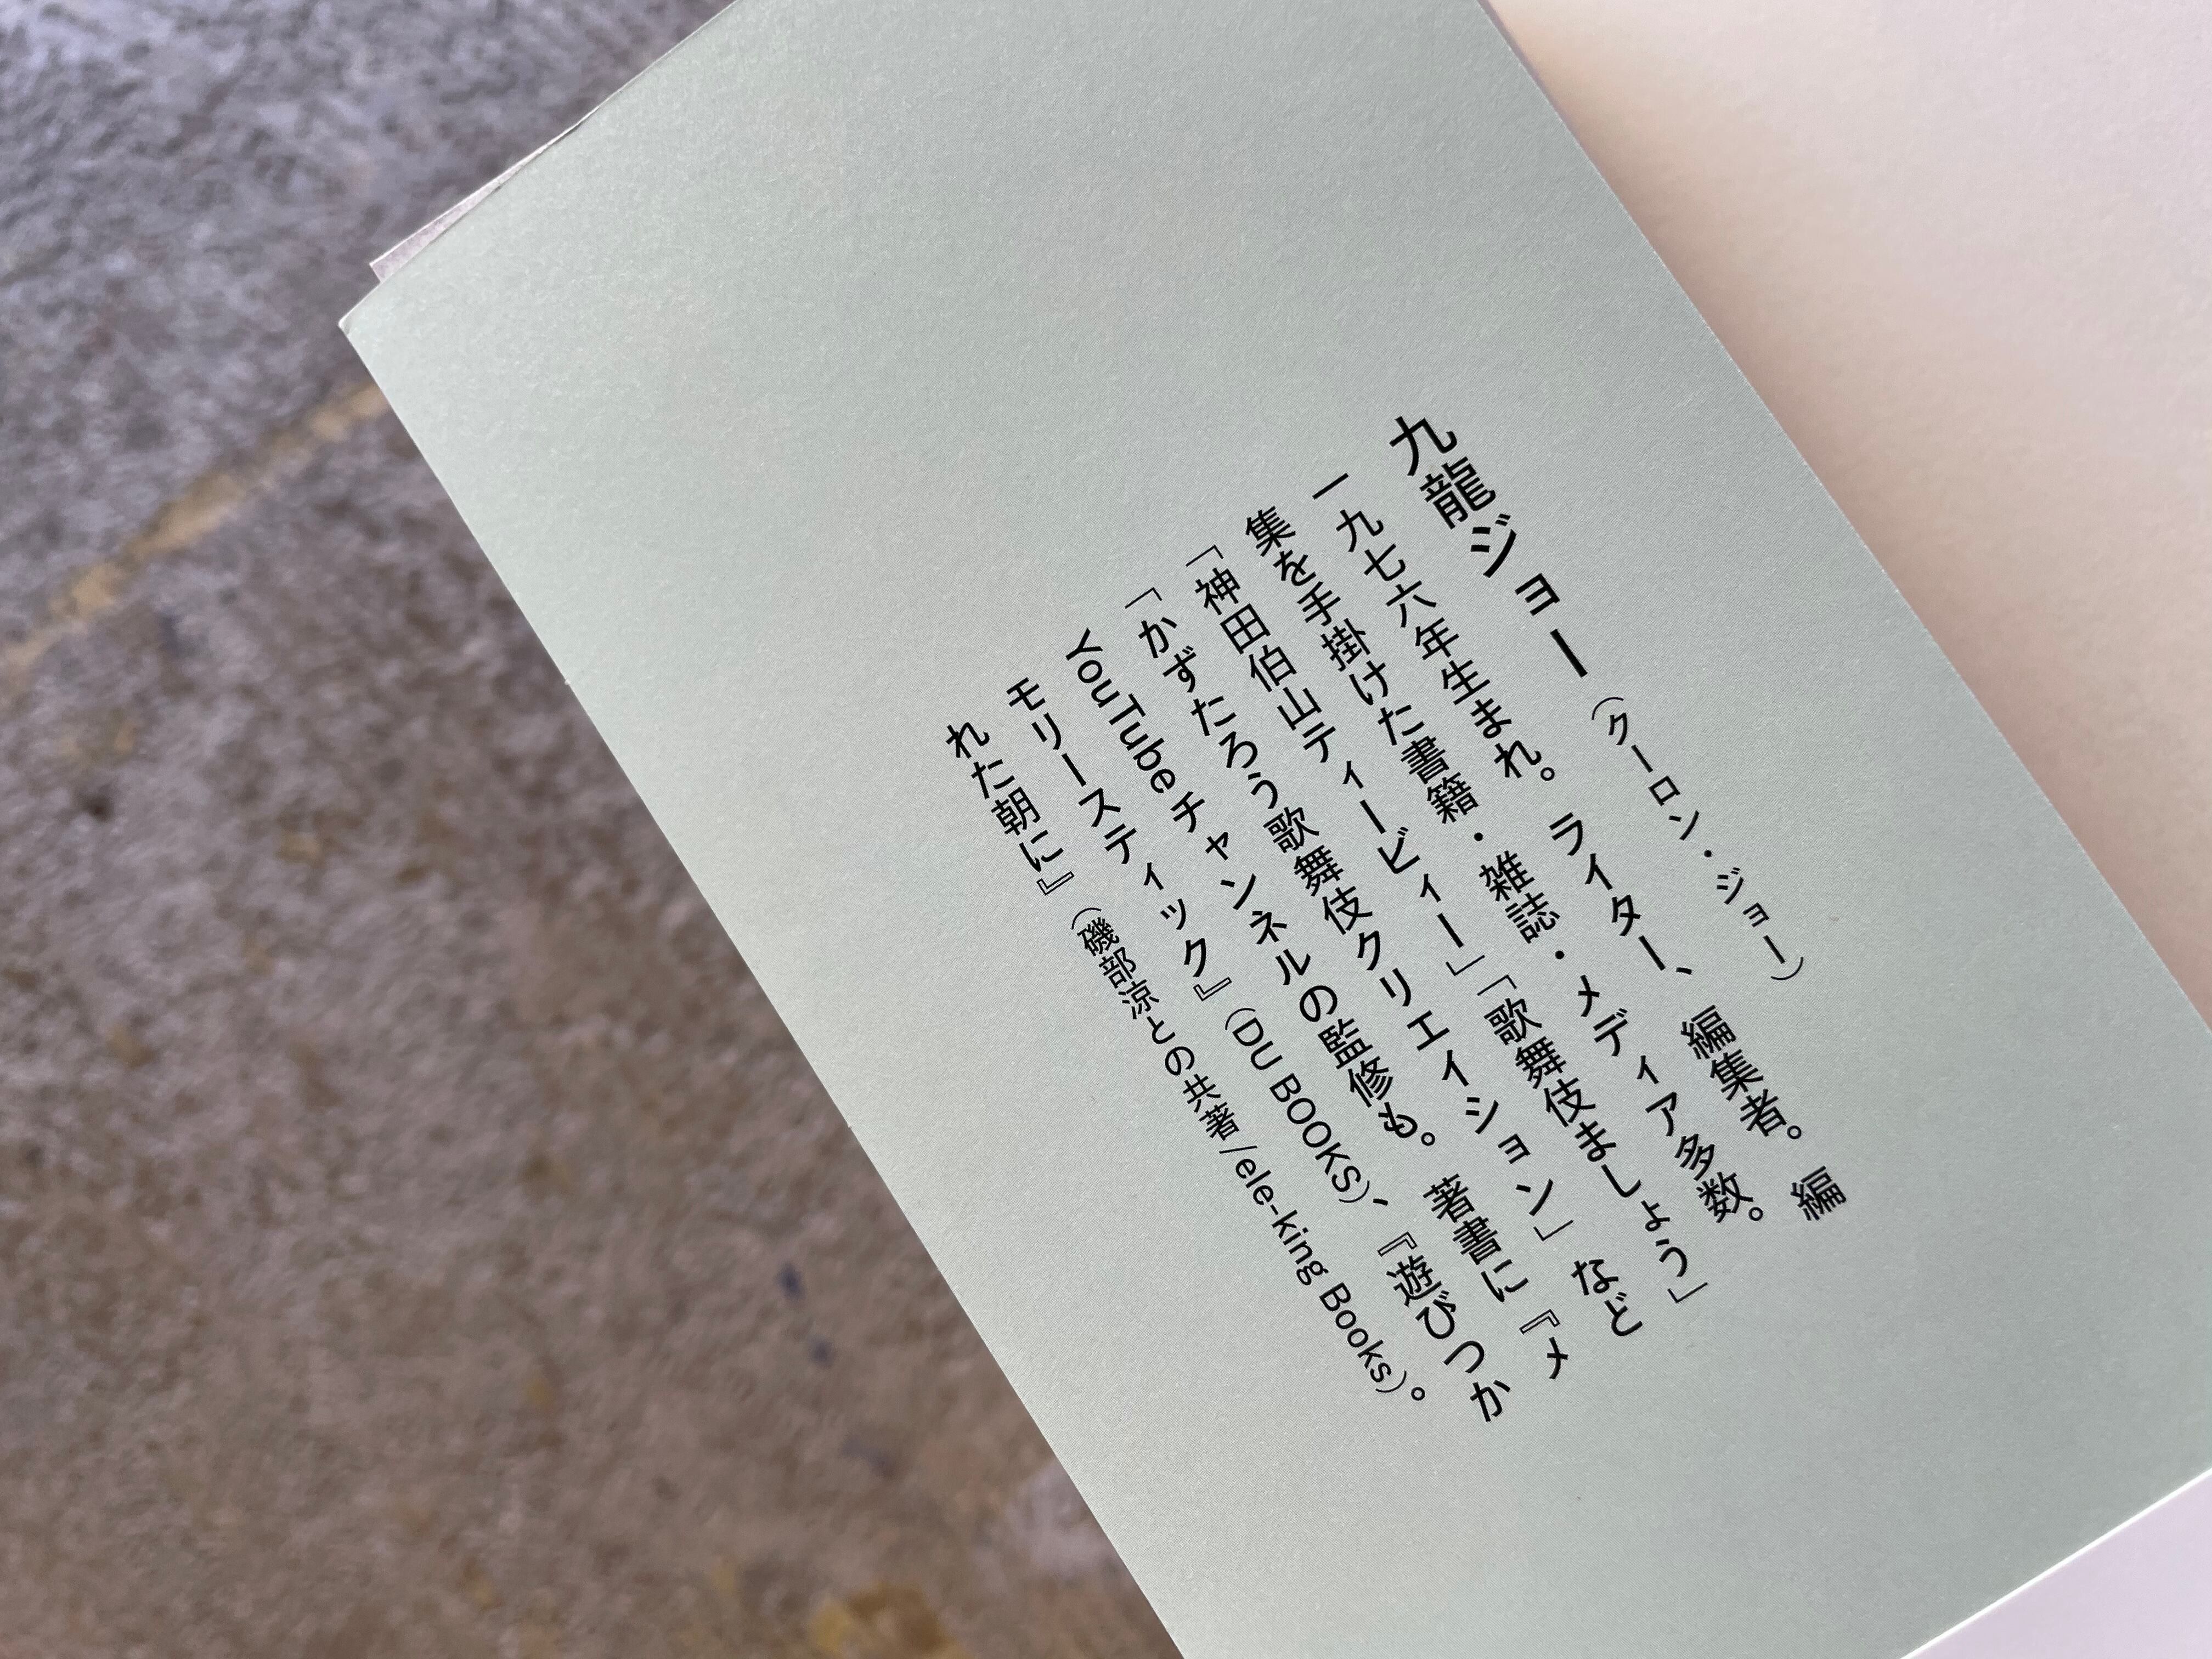 九龍ジョー（クーロン・ジョー）
一九七六年生まれ。ライター、編集者。編
集を手掛けた書籍・雑誌・メディア多数。
「神田伯山ティービィー」「歌舞伎ましょう」
「かずたろう歌舞伎クリエイション」など
YouTubeチャンネルの監修も。著書に『メ
モリースティック』（DU BOOKS）、『遊びつか
れた朝に』（磯部涼との共著/ele-king Books）。